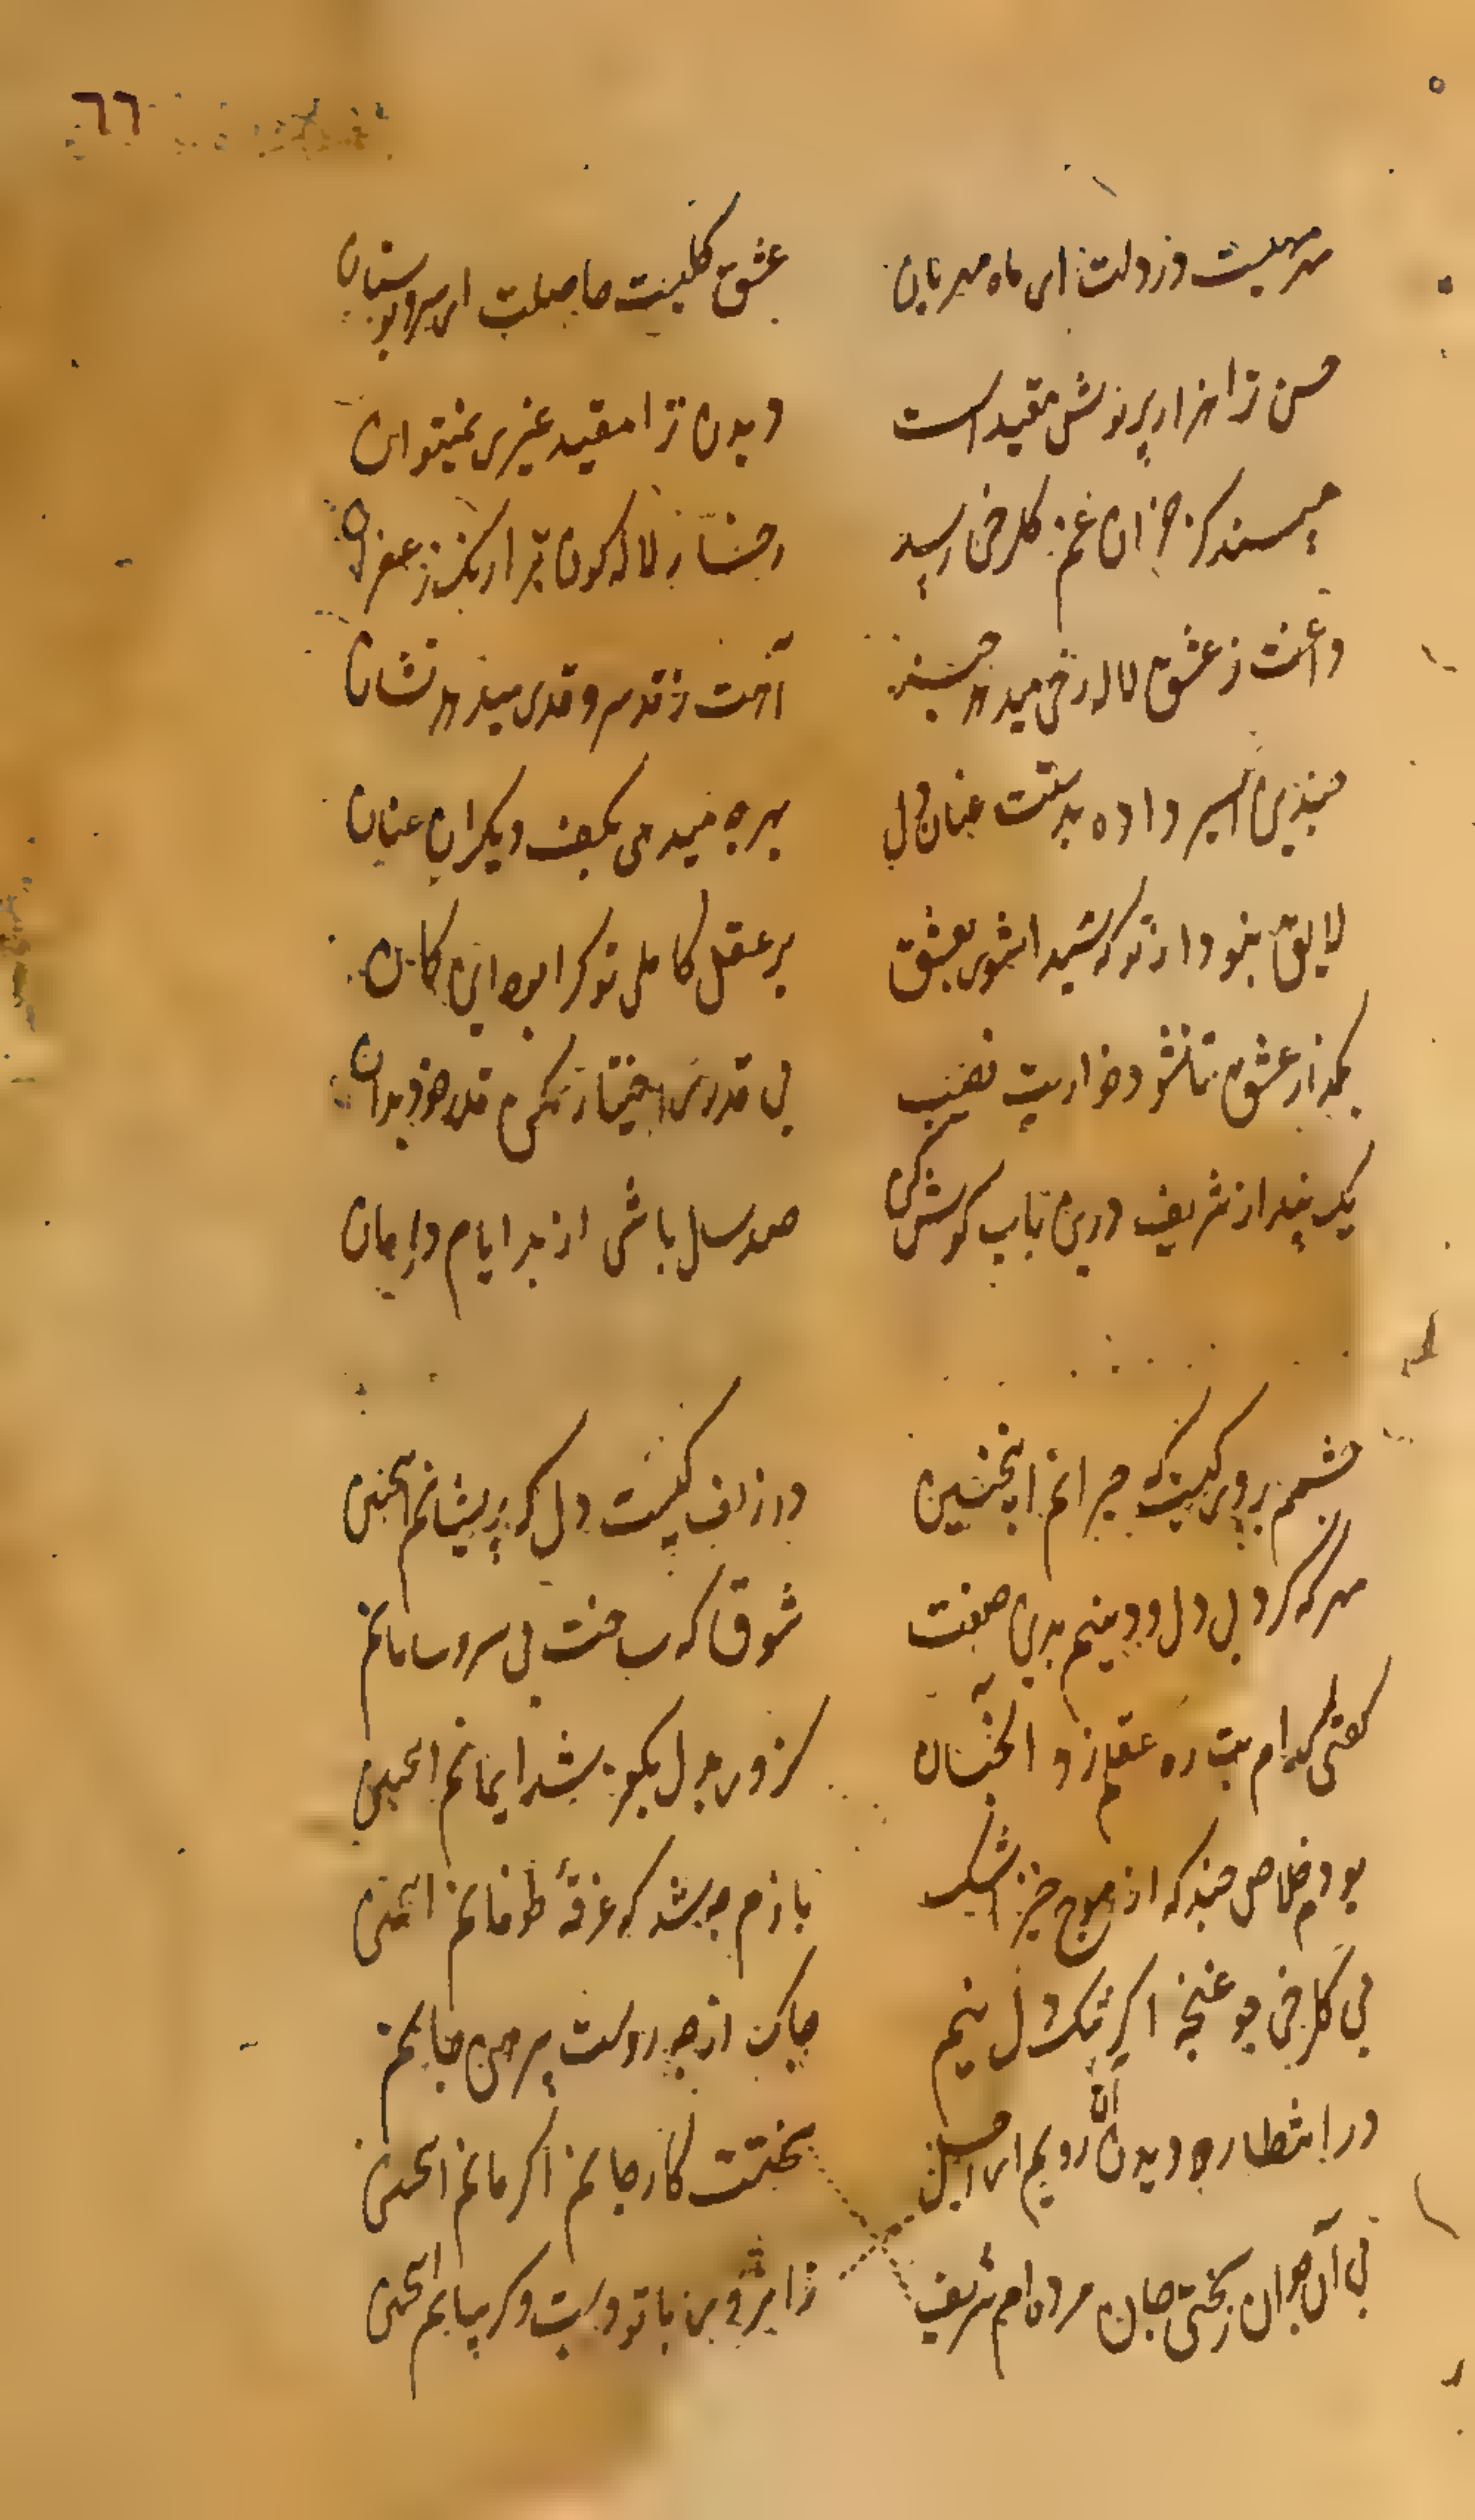 ٦٦
مهر کیست در دلت ای ماه مهربان عشق کیست حاصلت ای سرو بوستان
حسن ترا هزار پریوش مقید است دیدن ترا مقید غیری نمیتوان
مپسند کز خزان غم گلرخی رسد رخسار لاله کون ترا رنک زعفران
داغت ز عشق لاله رخی میدهد خبر آهت ز قد سرو قدی میدهد نشان
چندین اسیر داده بدستت عنان دل بهر چه میدهی بکف دیکران عنان
لایق نبود از تو که شیدا شوی بعشق بر عقل کامل تو کرا بود این کمان
بگذار عشق تا نشود خواریت نصیب بی قدری اختیار مکن قدر خود بدان
یک پند از شریف درین باب گوش کن صد سال باش از بد ایام در امان
چشمم بروی کیست که حیرانم اینچنین در زلف کیست دل که پریشانم اینچنین
مهر که کرد بی دل و دینم بدین صفت شوق که ساخت بی سر و سامانم
گفتی کدام بت ره عقلم زد آنچنان کز ور بدل بکو شد ایمانم اینچنین
بودم خلاص چند که از موج خیز اشک بازم چه شد که غرقهٔ طوفانم اینچنین
بی گلرخی چو غنچه اگر تنگ دل نیم چاک از چه روست پیرهن جانم
در انتظار دیدن آن رویم ای اجل سختست کار جانم اگر مانم اینچنین
بی آن جوان ز سختی جان مرده ام شریف